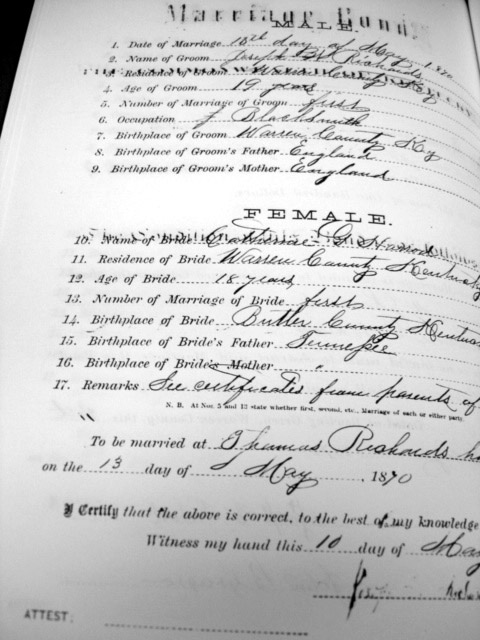 Marriage Bond
MALE.
1. Date of Marriage 13th day of May 1870
2. Name of Groom Joseph W Richards
3. Residence of Groom Warren County Ky
4. Age of Groom 19 years
5. Number of Marriage of Groom first
6. Occupation Blacksmith
7. Birthplace of Groom Warren County Ky
8. Birthplace of Groom's Father England
9. Birthplace of Groom's Mother England
FEMALE.
10. Name of Bride Catharine G
11. Residence of Bride Warren County Kentucky
12. Age of Bride 18 years
13. Number of Marriage of Bride first
14. Birthplace of Bride Butler County
15. Birthplace of Bride's Father Tennessee
16. Birthplace of Bride's Mother "
17. Remarks See certificates from parents of
N. B. At Nos. 5 and 12 state whether first, second, etc., Marriage of each or either party.
To be married at Thomas Richards
on the 13 day of May, 1870
I Certify that the above is correct, to the best of my knowledge
Witness my hand this 10 day of May
ATTEST: